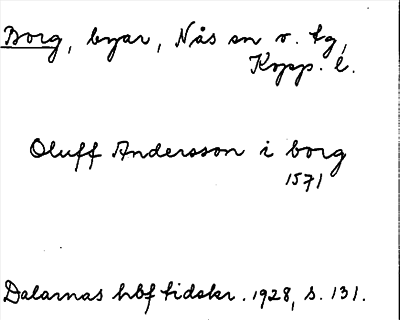 Borg, byar, Nås sn o. tg,
Kopp. l.
Oluff Andersson i borg
1571
Dalarnas hbf tidskr. 1928, s. 131.